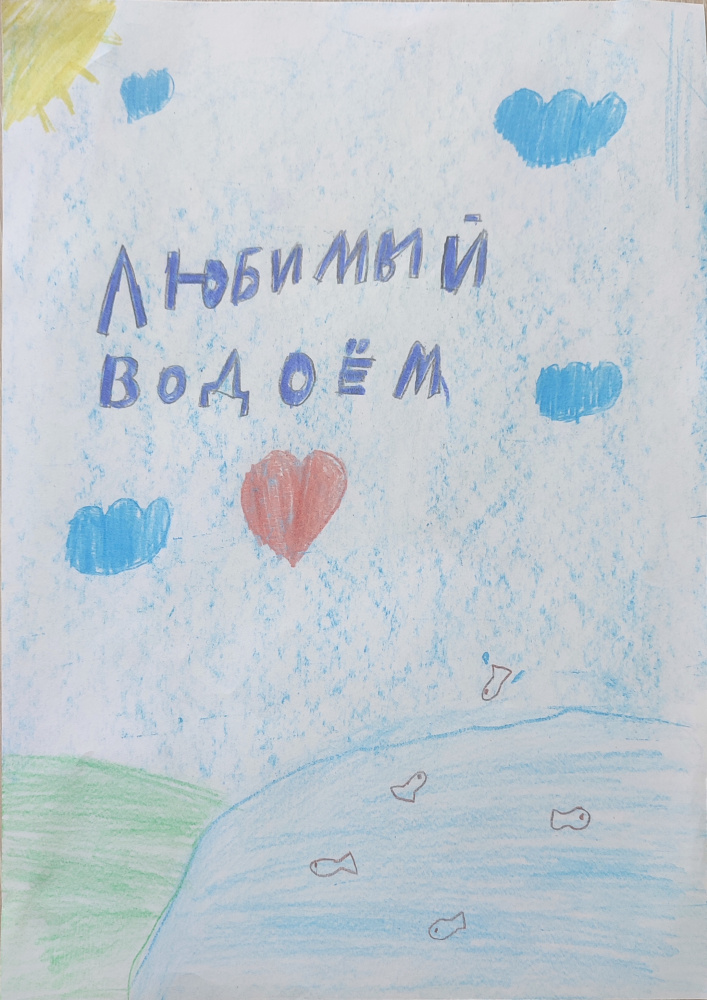 ЛЮБИМЫЙ
ВОДОЁМ